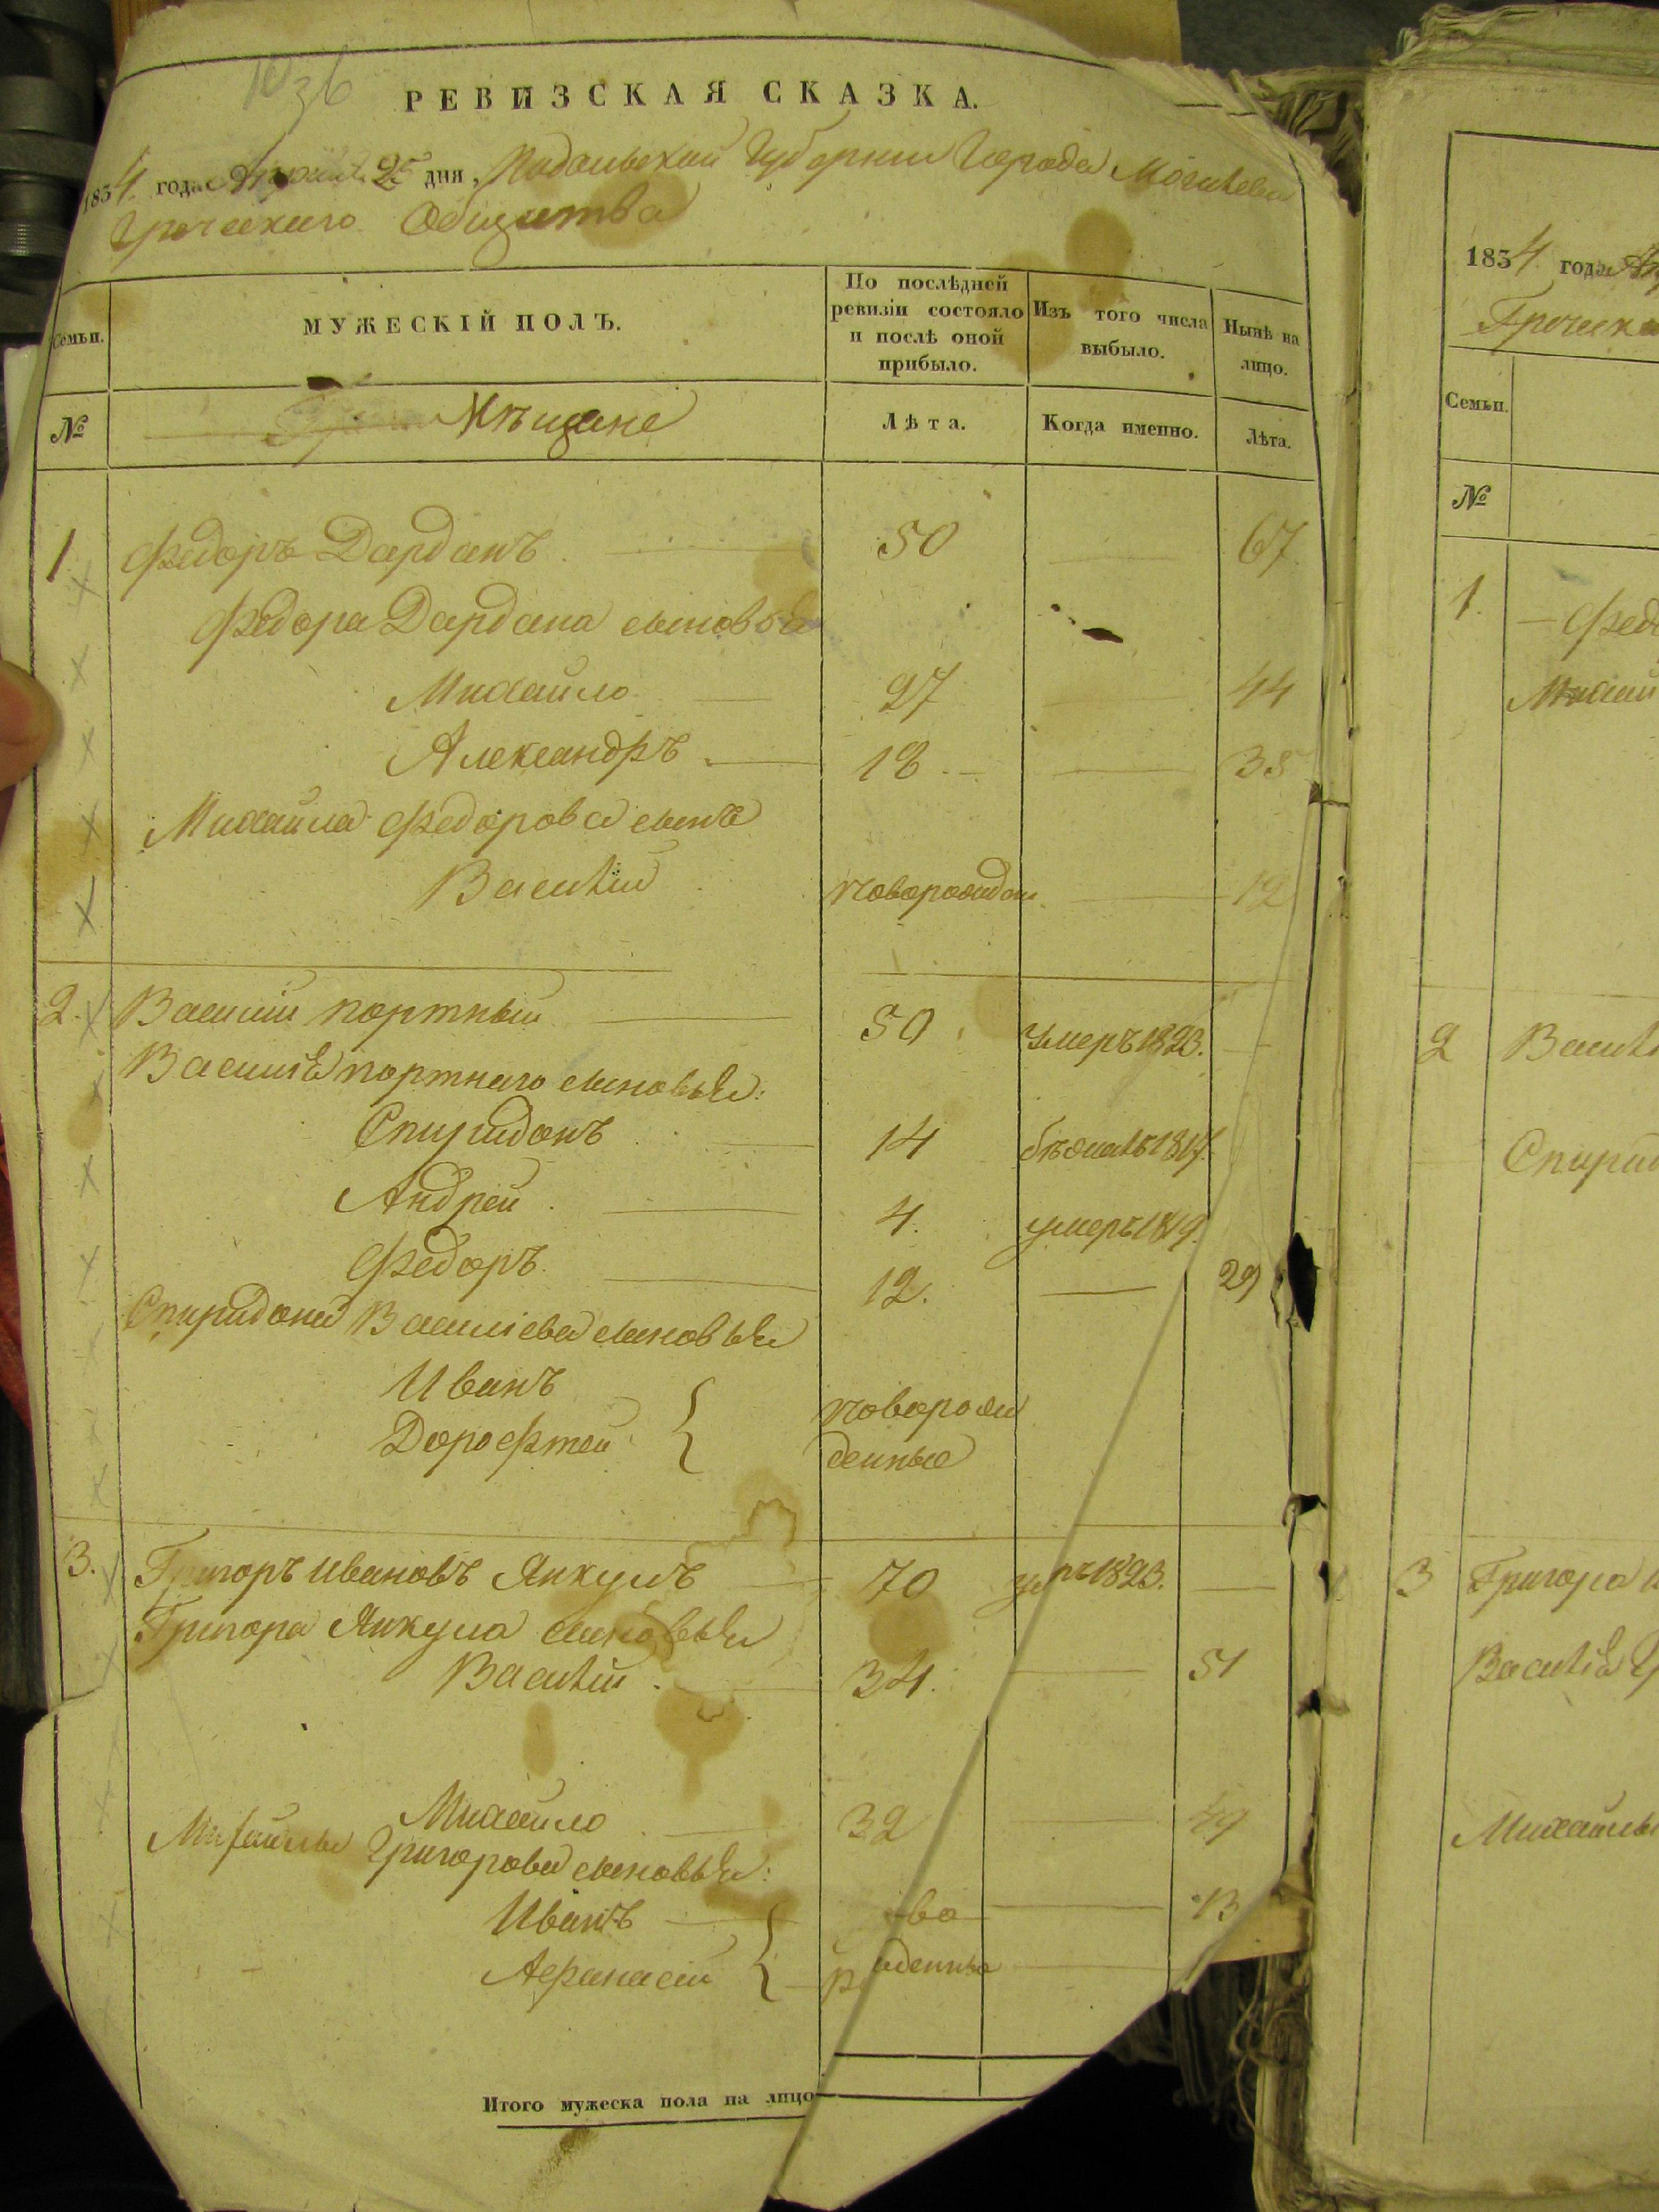 1036
РЕВИЗСКАЯ СКАЗКА.
1834 года Апреля 25 дня, Подольской Губернии Города Могилева
Греческаго Общества
Семьи.
МУЖЕСКІЙ ПОЛЪ.
По послѣдней ревизіи состояло и послѣ оной прибыло.
Изъ того числа выбыло.
Нынѣ на лицо.
№
Мѣщане
Лѣта.
Когда именно.
Лѣта.
1 Федоръ Дарданъ 50 67
Федора Дардана сыновья
Михайло 27 44
Александръ 18 35
Михайла Федорова сынъ
Василій новорожден. 12
2. Василій портный 50 умеръ 1823.
Василія портнаго сыновья:
Спиридонъ 14 бѣжалъ
Андрей 4. умеръ 1819.
Федоръ 12. 29
Спиридона Василіева сыновья
Иванъ новорож
Дорофтей денные
3. Григоръ Ивановъ Янкулъ 70 1823.
Григора Янкула сыновья
Василій 34. 51
Михайло 32 49
Михайлы Григорова сыновья:
Иванъ 13
Афанасій
Итого мужеска пола на лицо
1834 года
Греческа
Семьи.
№
1. Федо
Михай
2 Васил
Спирид
3 Григора
Василія
Михайлы